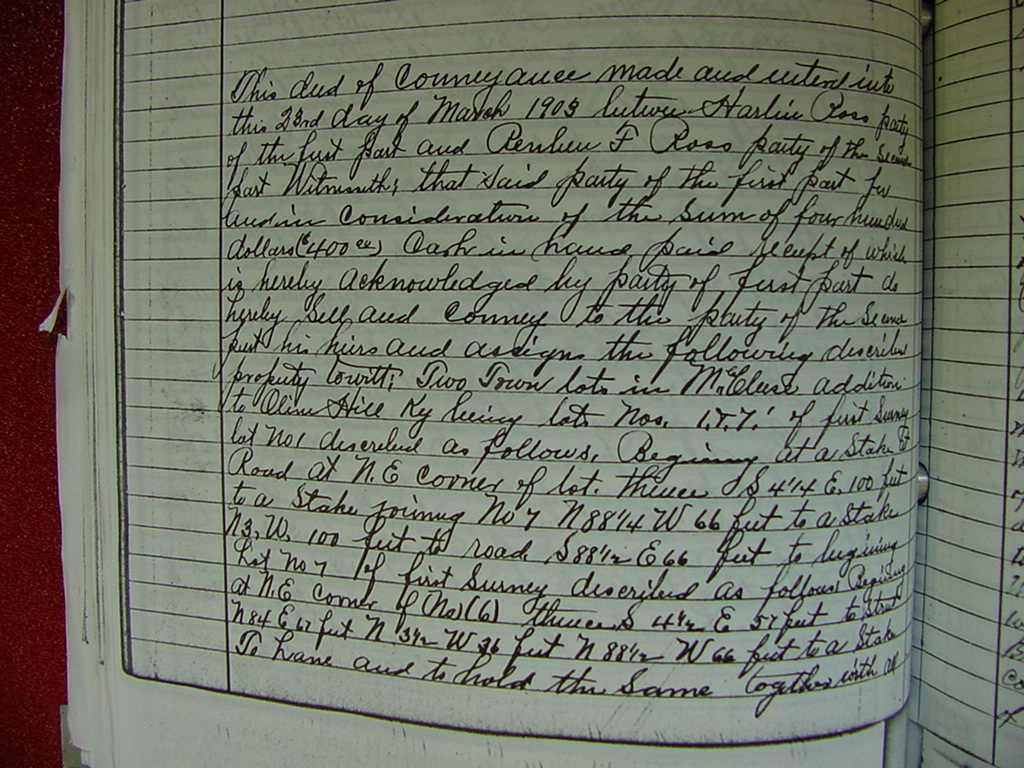 This deed of Conveyance made and enterd into
this 23rd day of March 1903 between Harlin Ross party
of the first part and Reuben F Ross party of the Second
part Witnesseth; that Said party of the first part for
and in Consideration of the Sum of four hundred
dollars ($400 00) Cash in hand paid receipt of which
is hereby acknowledged by party of first part do
hereby Sell and Convey to the party of the Second
part his heirs and assigns the following described
property towitt; Two Town lots in McCleese addition
to Olive Hill Ky being lots Nos. 1.&.7. of first Survey
lot No 1 described as follows. Beginning at a Stake at
Road at N.E corner of lot. thence S 4 1/4 E. 100 feet
to a Stake joining No 7 N 88 1/4 W 66 feet to a Stake
N 3. W. 100 feet to road S 88 1/2 E 66 feet to begining
Lot No 7 of first Survey described as follows Begining
at N.E corner of (No)(6) thence S 4 1/2 E 57 feet to Street
N 84 E 67 feet N 3 1/2 W 36 feet N 88 1/2 W 66 feet to a Stake
To have and to hold the Same together with all